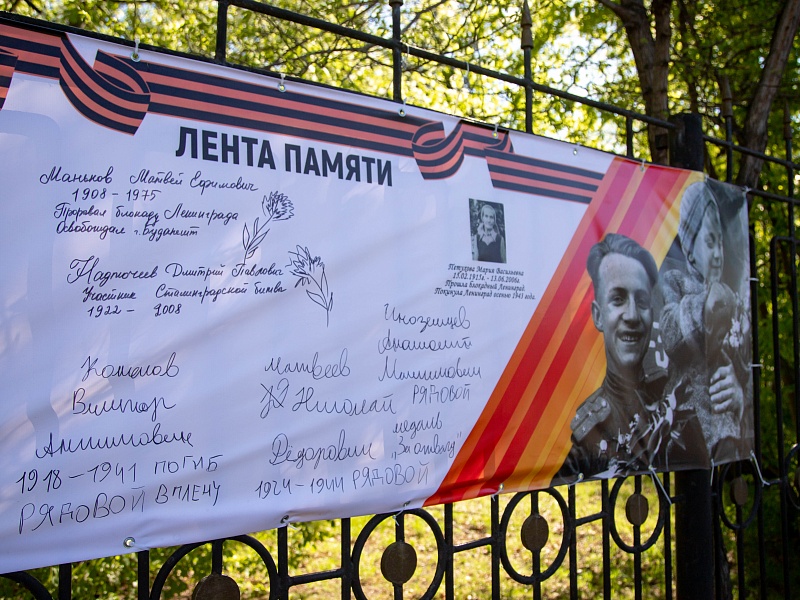 ЛЕНТА ПАМЯТИ
Маньков Матвей Ефимович
1908 - 1975
Прорвал блокаду Ленинграда
Освобождал г. Будапешт
Надточеев Дмитрий Павлович
Участник Сталинградской битвы
1922 - 2008
Петухова Мария Васильевна
15.02.1915г. - 13.06.2006г.
Прошла блокадный Ленинград.
Покинула Ленинград осенью 1943 года.
Виктор
1918-1941 ПОГИБ
РЯДОВОЙ В ПЛЕНУ
Матвеев
Николай
Фёдорович
1924-1944 РЯДОВОЙ
Иноземцев
Анатолий
РЯДОВОЙ
медаль
„За отвагу"